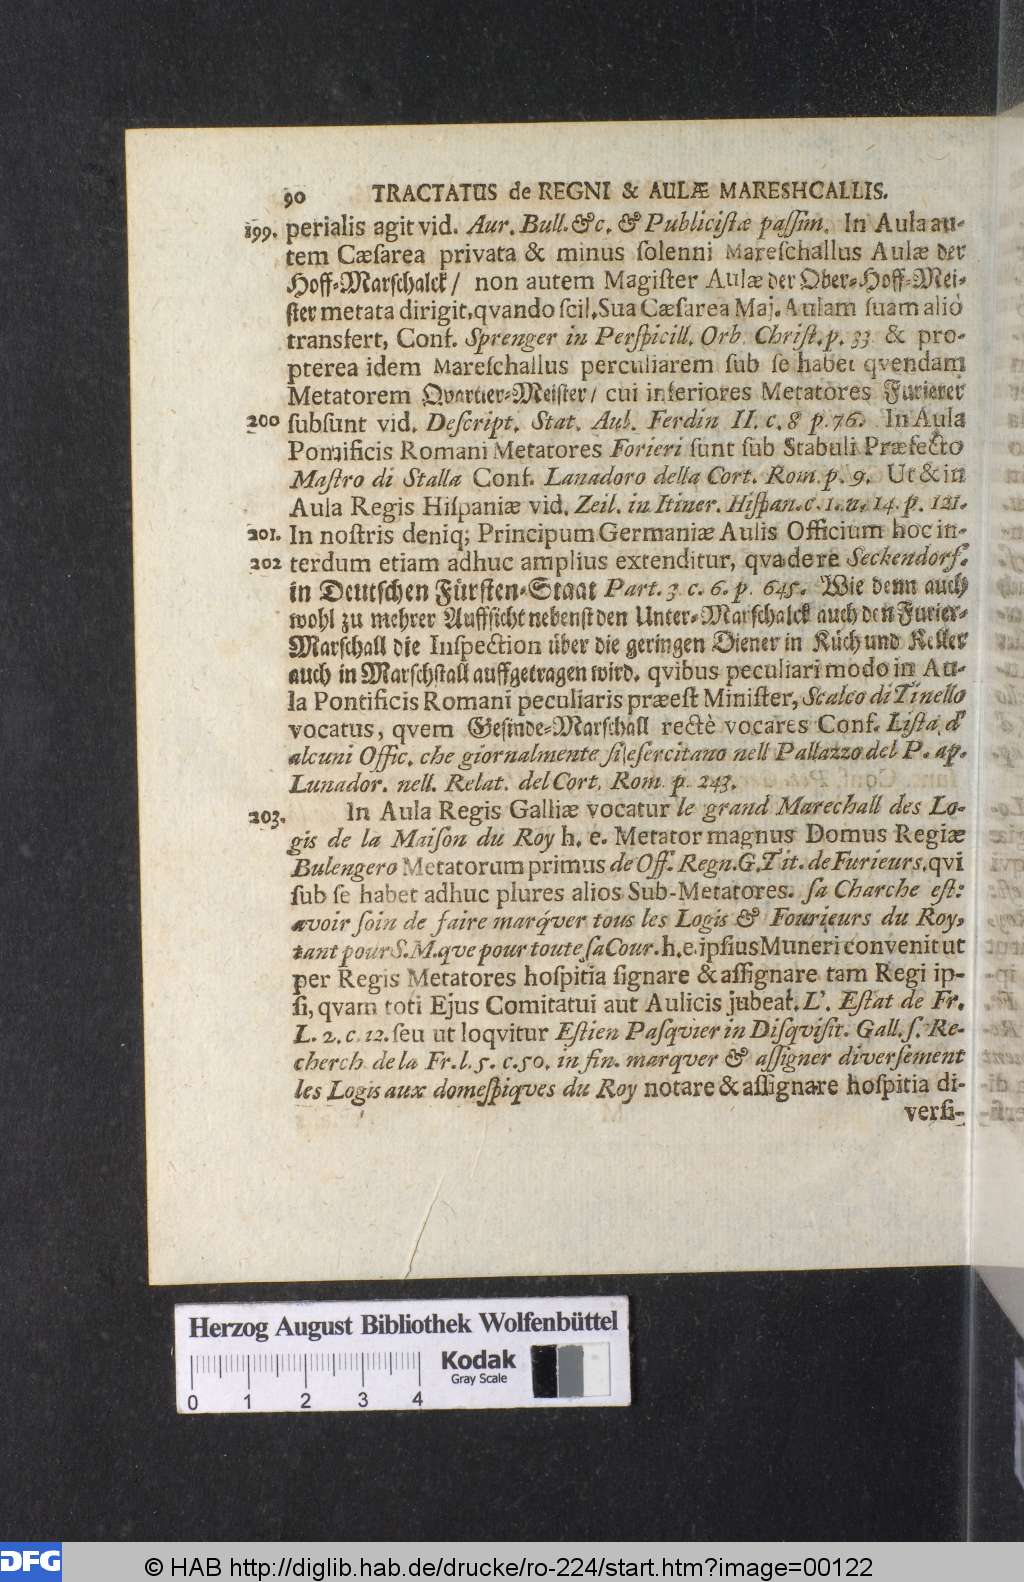 90 TRACTATUS de REGNI & AULÆ MARESHCALLIS.
199. perialis agit vid. Aur. Bull. &c. & Publiciſtæ paſſim. In Aula au-
tem Cæſarea privata & minus ſolenni Mareſchallus Aulæ der
Hoff-Marſchalck / non autem Magiſter Aulæ der Ober-Hoff-Mei-
ſter metata dirigit, qvando ſcil. Sua Cæſarea Maj. Aulam ſuam aliò
transfert, Conf. Sprenger in Perſpicill. Orb. Chriſt. p. 33 & pro-
pterea idem Mareſchallus perculiarem ſub ſe habet qvendam
Metatorem Qvartier-Meiſter / cui inferiores Metatores Furierer
200 ſubſunt vid. Deſcript. Stat. Aul. Ferdin II. c. 8 p. 76. In Aula
Pontificis Romani Metatores Forieri ſunt ſub Stabuli Præfecto
Maſtro di Stalla Conf. Lanadoro della Cort. Rom. p. 9. Ut & in
Aula Regis Hiſpaniæ vid. Zeil. in Itiner. Hiſpan. c. 1. n. 14. p. 121.
201. In noſtris deniq; Principum Germaniæ Aulis Officium hoc in-
202 terdum etiam adhuc amplius extenditur, qva de re Seckendorf.
in Deutſchen Fürſten-Staat Part. 3 c. 6. p. 645. Wie denn auch
wohl zu mehrer Auffſicht nebenſt den Unter-Marſchalck auch den Furier-
Marſchall die Inſpection über die geringen Diener in Küch und Keller
auch in Marſchſtall auffgetragen wird. qvibus peculiari modo in Au-
la Pontificis Romani peculiaris præeſt Miniſter, Scalco di Tinello
vocatus, qvem Geſinde-Marſchall rectè vocares Conf. Liſta d'
alcuni Offic. che giornalmente ſi eſercitano nell Pallazzo del P. ap.
Lunador. nell. Relat. del Cort. Rom p. 243.
203. In Aula Regis Galliæ vocatur le grand Marechall des Lo-
gis de la Maiſon du Roy h. e. Metator magnus Domus Regiæ
Bulengero Metatorum primus de Off. Regn. G. Tit. de Furieurs. qvi
ſub ſe habet adhuc plures alios Sub-Metatores. ſa Charche eſt:
avoir ſoin de faire marqver tous les Logis & Fourieurs du Roy,
tant pour S. M. qve pour toute ſa Cour. h. e. ipſius Muneri convenit ut
per Regis Metatores hoſpitia ſignare & aſſignare tam Regi ip-
ſi, qvam toti Ejus Comitatui aut Aulicis jubeat. L'. Eſtat de Fr.
L. 2. c. 12. ſeu ut loqvitur Eſtien Paſqvier in Diſqviſit. Gall. ſ. Re-
cherch de la Fr. l. 5. c. 50. in fin. marqver & aſſigner diverſement
les Logis aux domeſpiqves du Roy notare & aſſignare hoſpitia di-
verſi-
Herzog August Bibliothek Wolfenbüttel
Kodak
Gray Scale
0 1 2 3 4
DFG © HAB http://diglib.hab.de/drucke/ro-224/start.htm?image=00122